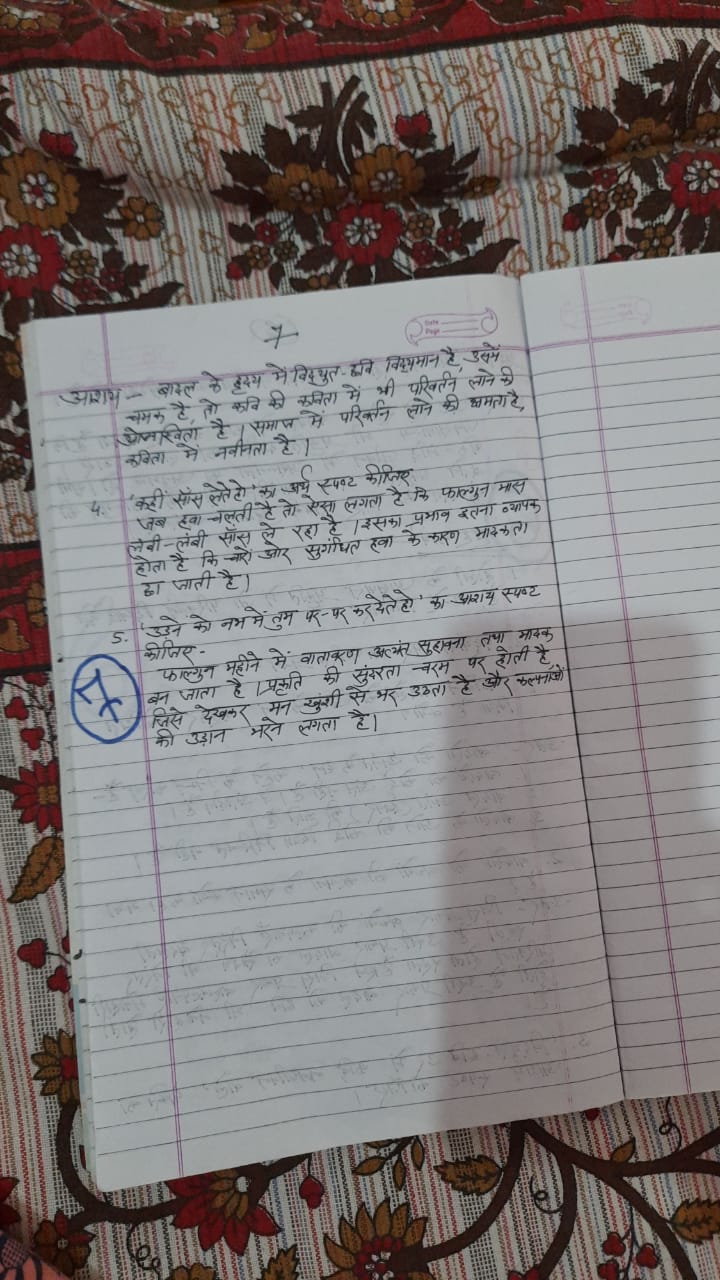 7
Date
Page
आशय - बादल के हृदय में विद्युत-छवि विद्यमान है, उसमें
चमक है, तो कवि की कविता में भी परिवर्तन लाने की
ओजस्विता है। समाज में परिवर्तन लाने की क्षमता है,
कविता में नवीनता है।
4. 'कहीं साँस लेते हो' का अर्थ स्पष्ट कीजिए
जब हवा चलती है तो ऐसा लगता है कि फाल्गुन मास
लंबी-लंबी साँस ले रहा है। इसका प्रभाव इतना व्यापक
होता है कि चारों ओर सुगंधित हवा के कारण मादकता
छा जाती है।
5. 'उड़ने को नभ में तुम पर-पर कर देते हो' का आशय स्पष्ट
कीजिए-
फाल्गुन महीने में वातावरण अत्यंत सुहावना तथा मादक
बन जाता है। प्रकृति की सुंदरता चरम पर होती है,
जिसे देखकर मन खुशी से भर उठता है और कल्पनाओं
की उड़ान भरने लगता है।